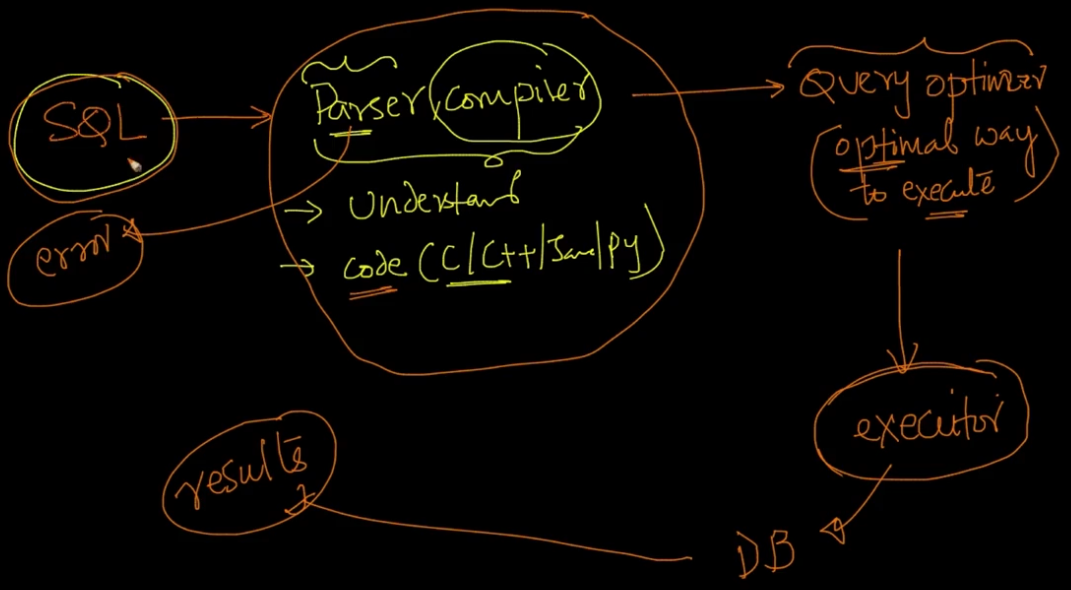 SQL
error
Parser, compiler
→ Understand
→ code (C/C++/Java/Py)
Query optimizer
(optimal way
to execute)
executor
DB
results